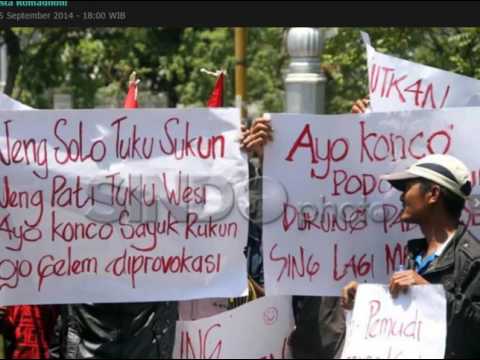 sta Romadhoni
September 2014 - 18:00 WIB
Neng Solo Tuku Sukun
Neng Pati Tuku Wesi
Ayo konco Sayuk Rukun
ojo gelem diprovokasi
Ayo konco
PODO
DUKUNG
SING LAGI
UTKAN
SINDOphoto
Pemudi